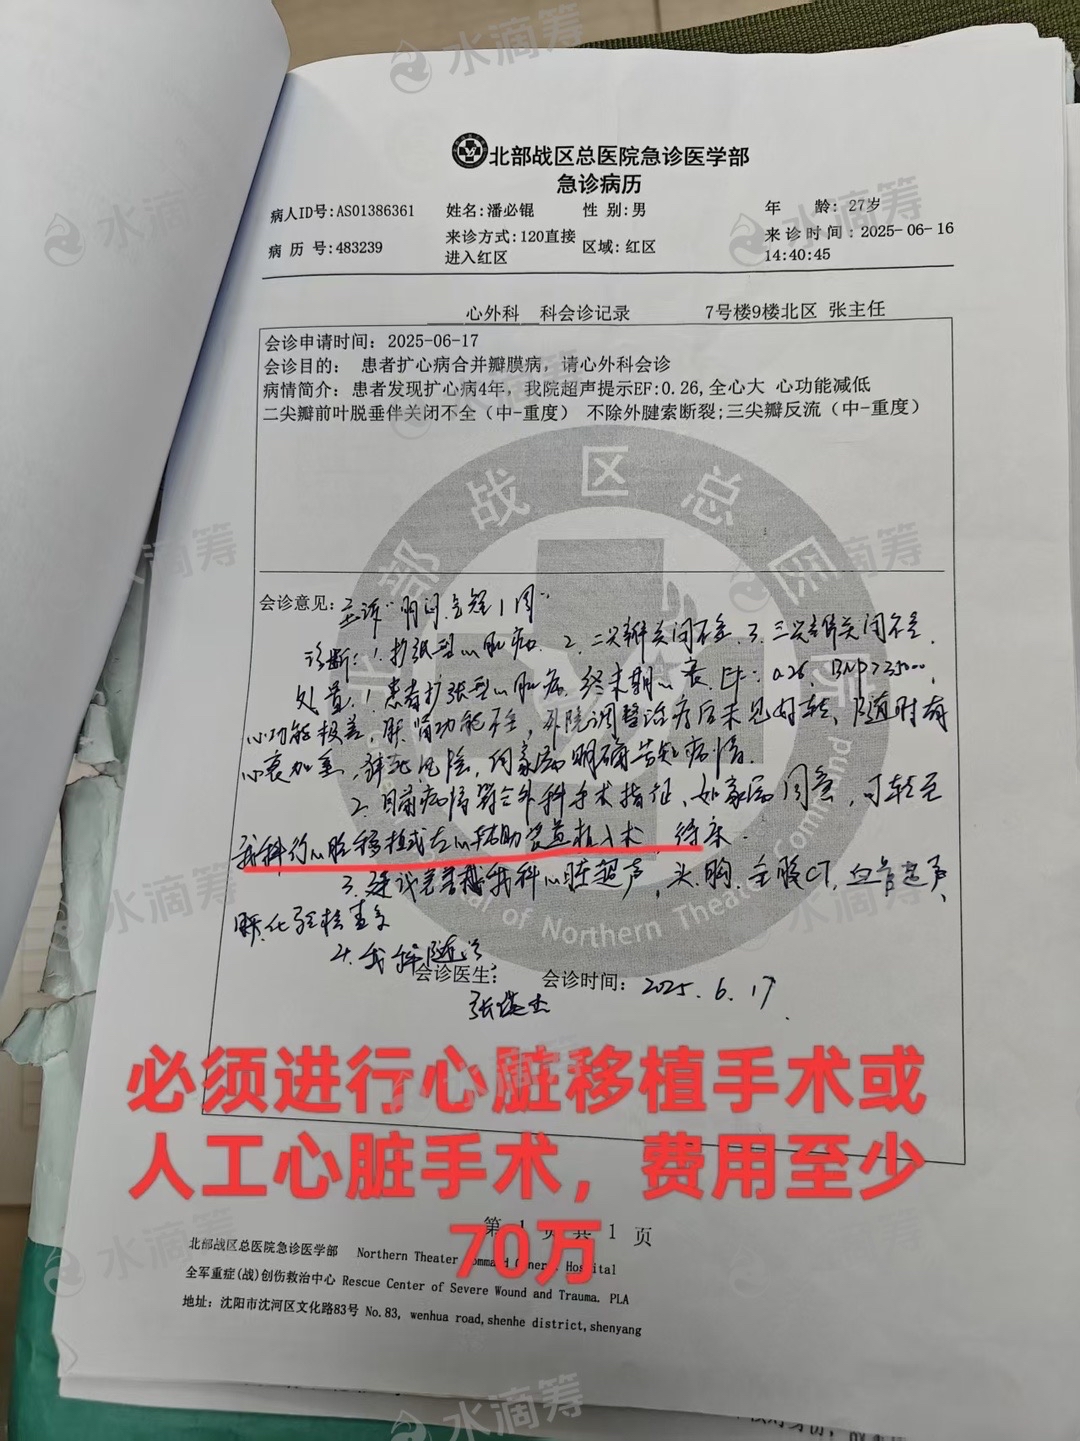 水滴筹
北部战区总医院急诊医学部
急诊病历
病人ID号:AS01386361 姓名:潘必锟 性 别:男 年 龄: 27岁
病 历 号:483239 来诊方式:120直接进入红区 区域: 红区 来 诊 时 间 : 2025-06-16 14:40:45
心外科 科会诊记录 7号楼9楼北区 张主任
会诊申请时间: 2025-06-17
会诊目的: 患者扩心病合并瓣膜病, 请心外科会诊
病情简介: 患者发现扩心病4年, 我院超声提示EF:0.26,全心大 心功能减低
二尖瓣前叶脱垂伴关闭不全（中-重度） 不除外腱索断裂;三尖瓣反流（中-重度）
会诊意见: 主诉"胸闷气短1周"
诊断: 1. 扩张型心肌病. 2. 二尖瓣关闭不全. 3. 三尖瓣关闭不全.
处置: 1. 患者扩张型心肌病, 终末期心衰. EF: 0.26. BNP>35000
心功能极差, 肝肾功能不全, 外院调整治疗后未见好转, 随时有
心衰加重, 猝死风险, 向家属明确告知病情.
2. 目前病情符合外科手术指征, 如家属同意, 可转至
我科行心脏移植或左心辅助装置植入术, 待床.
3. 建议完善我科心脏超声, 头.胸.全腹CT, 血管超声
化验检查
4. 我科随诊
会诊医生: 会诊时间: 2025.6.17
必须进行心脏移植手术或
人工心脏手术，费用至少
70万
第 1 页 共 1 页
北部战区总医院急诊医学部 Northern Theater Command General Hospital
全军重症(战)创伤救治中心 Rescue Center of Severe Wound and Trauma. PLA
地址: 沈阳市沈河区文化路83号 No.83, wenhua road,shenhe district,shenyang